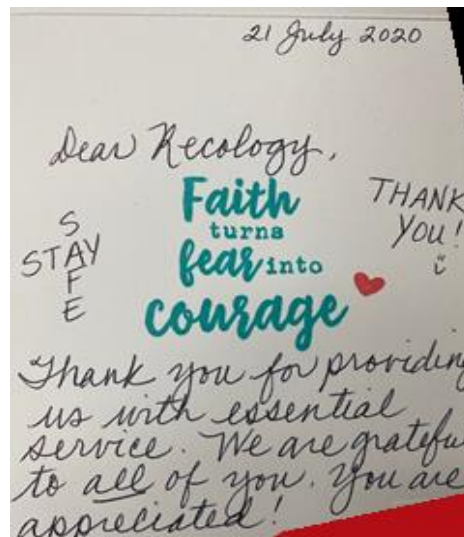 21 July 2020
Dear Recology,
Faith
turns
fear into
courage
STAY
SAFE
THANK
YOU!
Thank you for providing
us with essential
service. We are grateful
to all of you. You are
appreciated!